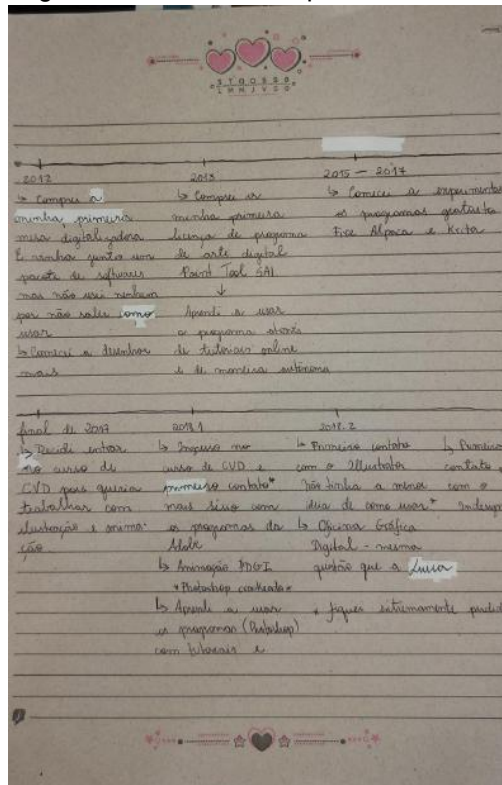 S T Q Q S S D
L M M J V S D
2012
↳ Comprei a
minha primeira
mesa digitalizadora
E vinha junto um
pacote de softwares
mas não usei nenhum
por não saber como
usar
↳ Comecei a desenhar
mais
2013
↳ Comprei a
minha primeira
licença de programa
de arte digital
Paint Tool SAI
↓
Aprendi a usar
o programa através
de tutoriais online
e de maneira autônoma
2015 — 2017
↳ Comecei a experimentar
os programas gratuitos
Fire Alpaca e Krita
final de 2017
↳ Decidi entrar
no curso de
CVD pois queria
trabalhar com
ilustração e anima-
ção
2018.1
↳ Ingresso no
curso de CVD e
primeiro contato*
mais sério com
os programas da
Adobe
↳ Animação #DGI
*Photoshop crackeado*
↳ Aprendi a usar
os programas (Photoshop)
com tutoriais e
2018.2
↳ Primeiro contato
com o Illustrator
Não tinha a menor
ideia de como usar*
↳ Oficina Gráfica
Digital - mesma
questão que a Luisa
* fiquei extremamente perdida
↳ Primeiro
contato
com o
Indesign